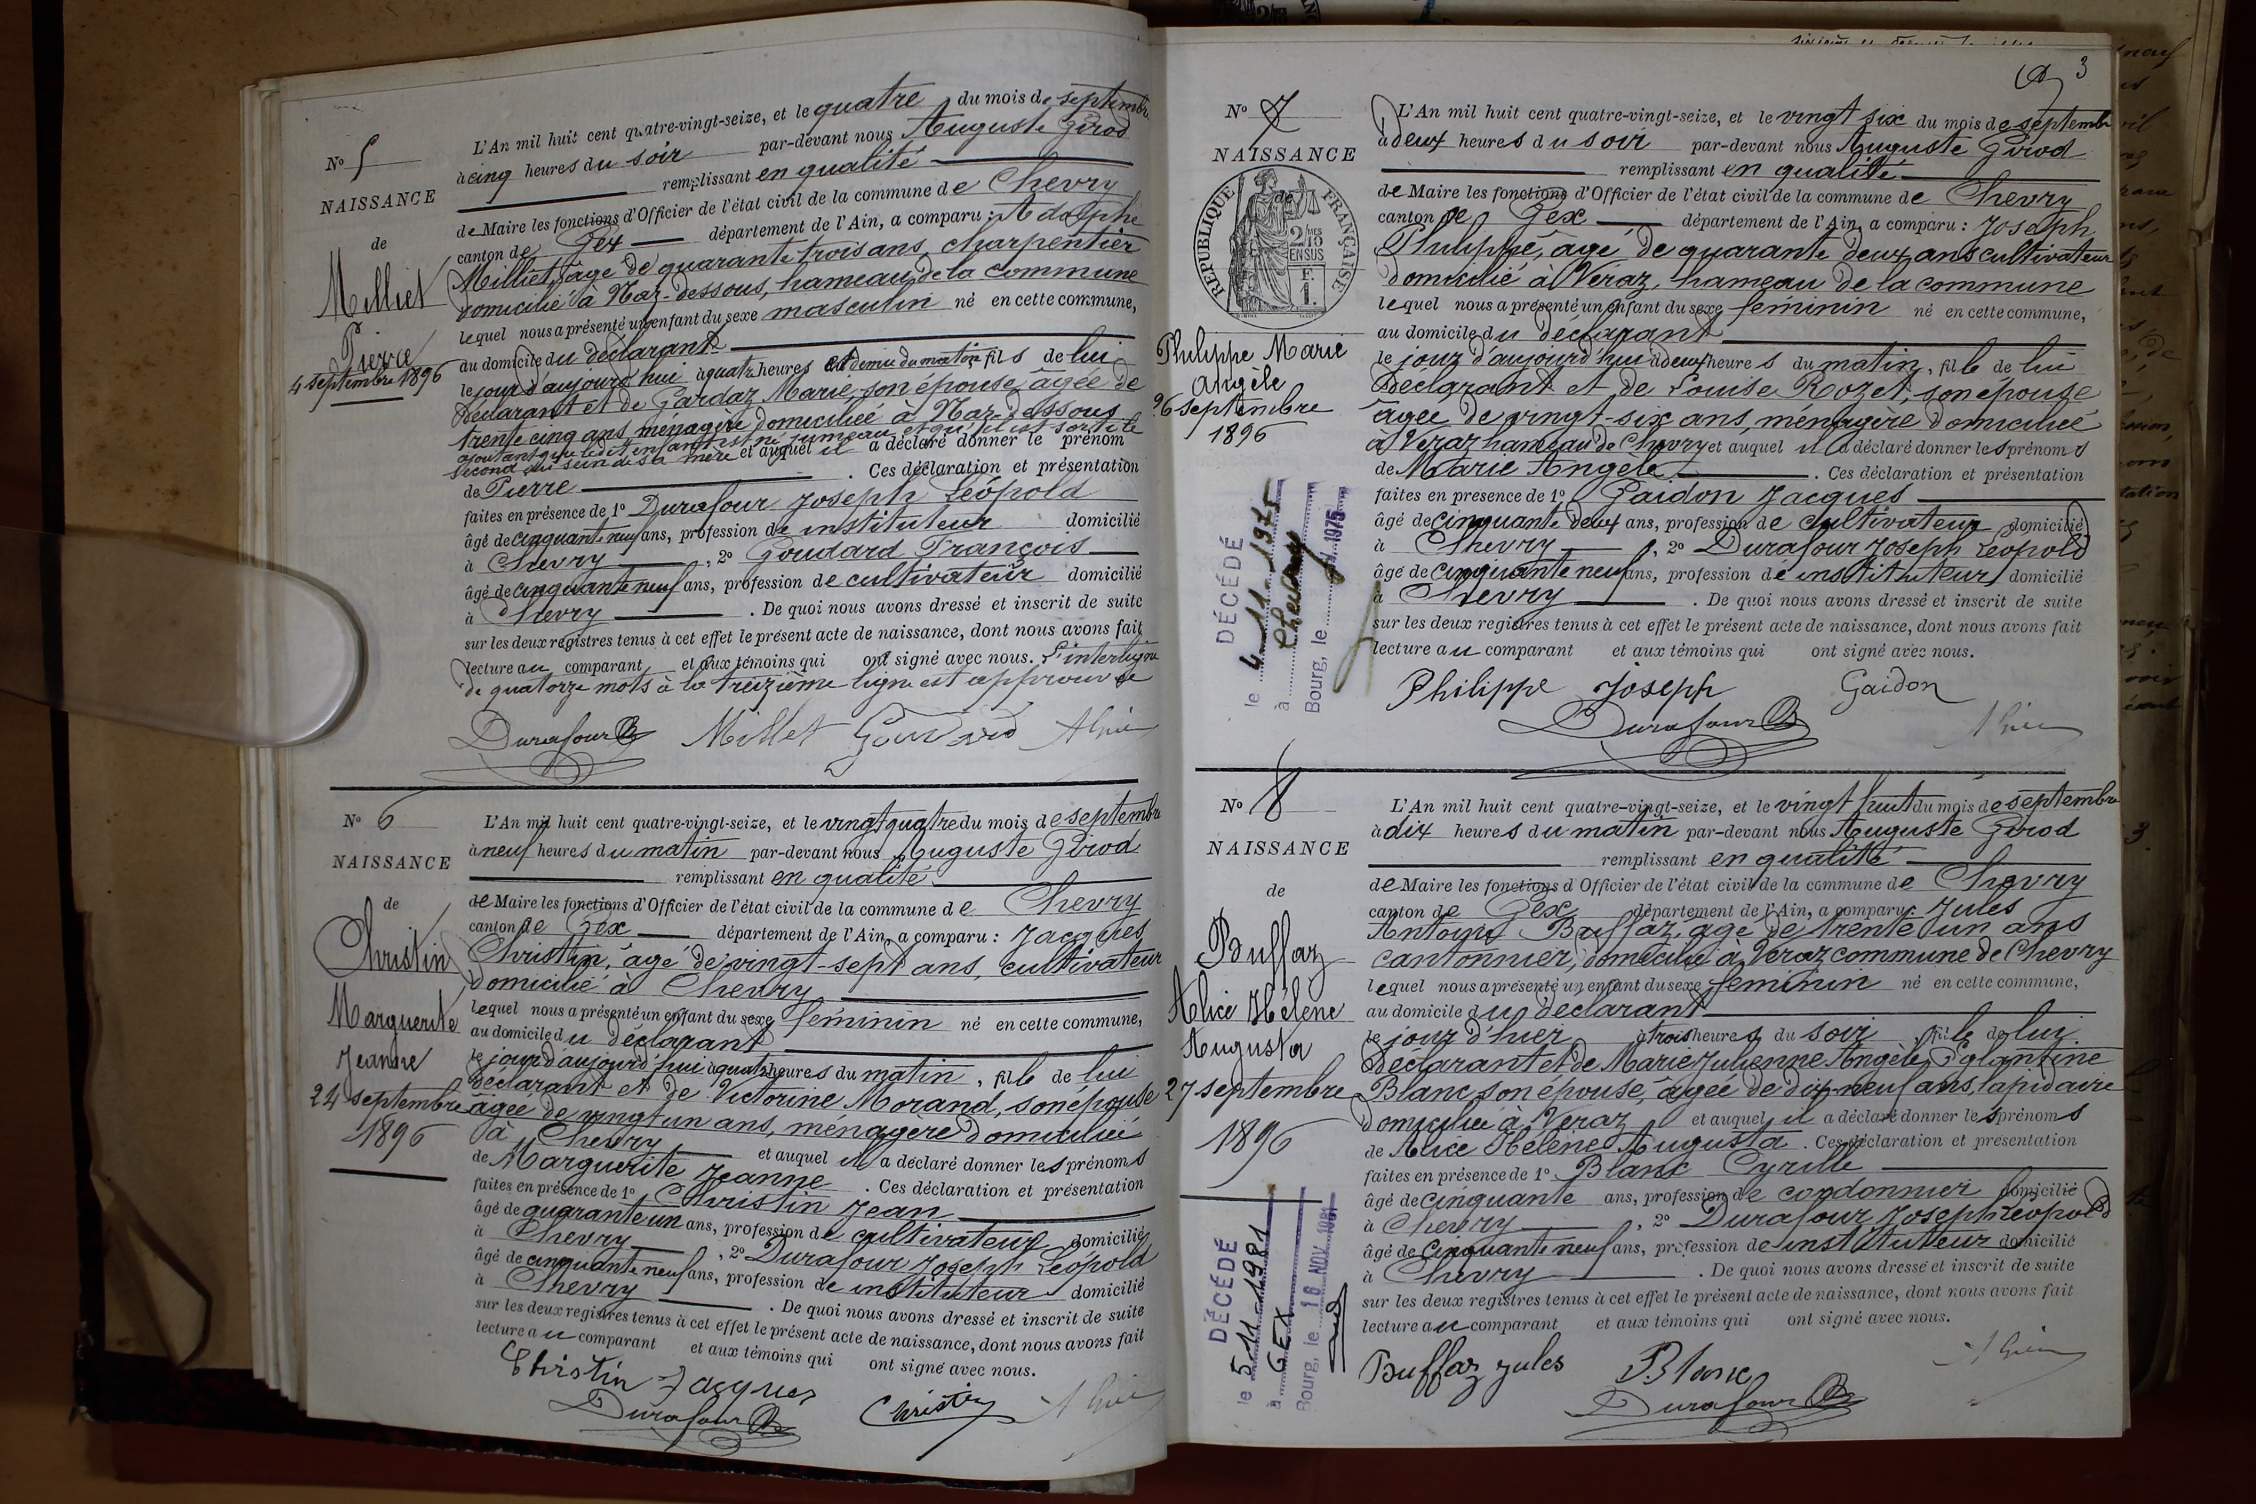 Nº 5
NAISSANCE
de
Milliet
Pierre
4 septembre 1896
L'An mil huit cent quatre-vingt-seize, et le quatre du mois de septembre
à cinq heures du soir par-devant nous Auguste Girod
remplissant en qualité
de Maire les fonctions d'Officier de l'état civil de la commune de Chevry
canton de Gex département de l'Ain, a comparu : Adolphe
Milliet, âgé de quarante trois ans, charpentier
domicilié à Naz-dessous, hameau de la commune
lequel nous a présenté un enfant du sexe masculin né en cette commune,
au domicile du déclarant
le jour d'aujourd'hui à quatre heures et demie du matin, fils de lui
déclarant et de Gardaz Marie, son épouse, âgée de
trente cinq ans, ménagère domiciliée à Naz-dessous
ajoutant que ledit enfant est né jumeau et qu'il est sorti le
second du sein de sa mère et auquel il a déclaré donner le prénom
de Pierre . Ces déclaration et présentation
faites en présence de 1º Durafour Joseph Léopold
âgé de cinquante neuf ans, profession de instituteur domicilié
à Chevry , 2º Goudard François
âgé de cinquante neuf ans, profession de cultivateur domicilié
à Chevry . De quoi nous avons dressé et inscrit de suite
sur les deux registres tenus à cet effet le présent acte de naissance, dont nous avons fait
lecture au comparant et aux témoins qui ont signé avec nous. L'interligne
de quatorze mots à la treizième ligne est approuvée
Durafour Millet Goudard
Nº 6
NAISSANCE
de
Christin
Marguerite
Jeanne
24 septembre
1896
L'An mil huit cent quatre-vingt-seize, et le vingt quatre du mois de septembre
à neuf heures du matin par-devant nous Auguste Girod
remplissant en qualité
de Maire les fonctions d'Officier de l'état civil de la commune de Chevry
canton de Gex département de l'Ain, a comparu : Jacques
Christin, âgé de vingt-sept ans, cultivateur
domicilié à Chevry
lequel nous a présenté un enfant du sexe féminin né en cette commune,
au domicile du déclarant
le jour d'aujourd'hui à quatre heures du matin, fille de lui
déclarant et de Victorine Morand, son épouse
âgée de vingt un ans, ménagère domiciliée
à Chevry et auquel il a déclaré donner les prénoms
de Marguerite Jeanne . Ces déclaration et présentation
faites en présence de 1º Christin Jean
âgé de quarante un ans, profession de cultivateur domicilié
à Chevry , 2º Durafour Joseph Léopold
âgé de cinquante neuf ans, profession de instituteur domicilié
à Chevry . De quoi nous avons dressé et inscrit de suite
sur les deux registres tenus à cet effet le présent acte de naissance, dont nous avons fait
lecture au comparant et aux témoins qui ont signé avec nous.
Christin Jacques
Durafour Christin
3
Nº 7
NAISSANCE
de
RÉPUBLIQUE FRANÇAISE
2/10 MES
EN SUS
Philippe Marie
Angèle
26 septembre
1896
DÉCÉDÉ
le 4.11.1975
à Chevry
Bourg, le 1975
L'An mil huit cent quatre-vingt-seize, et le vingt six du mois de septembre
à deux heures du soir par-devant nous Auguste Girod
remplissant en qualité
de Maire les fonctions d'Officier de l'état civil de la commune de Chevry
canton de Gex département de l'Ain, a comparu : Joseph
Philippe, âgé de quarante deux ans cultivateur
domicilié à Véraz, hameau de la commune
lequel nous a présenté un enfant du sexe féminin né en cette commune,
au domicile du déclarant
le jour d'aujourd'hui à deux heures du matin, fille de lui
déclarant et de Louise Rozet, son épouse
âgée de vingt-six ans, ménagère domiciliée
à Véraz hameau de Chevry et auquel il a déclaré donner les prénoms
de Marie Angèle . Ces déclaration et présentation
faites en présence de 1º Gaidon Jacques
âgé de cinquante deux ans, profession de cultivateur domicilié
à Chevry , 2º Durafour Joseph Léopold
âgé de cinquante neuf ans, profession de instituteur domicilié
à Chevry . De quoi nous avons dressé et inscrit de suite
sur les deux registres tenus à cet effet le présent acte de naissance, dont nous avons fait
lecture au comparant et aux témoins qui ont signé avec nous.
Philippe Joseph Gaidon
Durafour
Nº 8
NAISSANCE
de
Buffaz
Alice Hélène
Augusta
27 septembre
1896
DÉCÉDÉ
le 5.11.1981
à GEX
Bourg, le 10 NOV. 1981
L'An mil huit cent quatre-vingt-seize, et le vingt huit du mois de septembre
à dix heures du matin par-devant nous Auguste Girod
remplissant en qualité
de Maire les fonctions d'Officier de l'état civil de la commune de Chevry
canton de Gex département de l'Ain, a comparu : Jules
Antoine Buffaz, âgé de trente un ans
cantonnier, domicilié à Véraz commune de Chevry
lequel nous a présenté un enfant du sexe féminin né en cette commune,
au domicile du déclarant
le jour d'hier à trois heures du soir, fille de lui
déclarant et de Marie Julienne Angèle Eglantine
Blanc son épouse, âgée de dix-neuf ans, lapidaire
domiciliée à Véraz et auquel il a déclaré donner les prénoms
de Alice Hélène Augusta . Ces déclaration et présentation
faites en présence de 1º Blanc Cyrille
âgé de cinquante ans, profession de cordonnier domicilié
à Chevry , 2º Durafour Joseph Léopold
âgé de cinquante neuf ans, profession de instituteur domicilié
à Chevry . De quoi nous avons dressé et inscrit de suite
sur les deux registres tenus à cet effet le présent acte de naissance, dont nous avons fait
lecture au comparant et aux témoins qui ont signé avec nous.
Buffaz Jules Blanc
Durafour